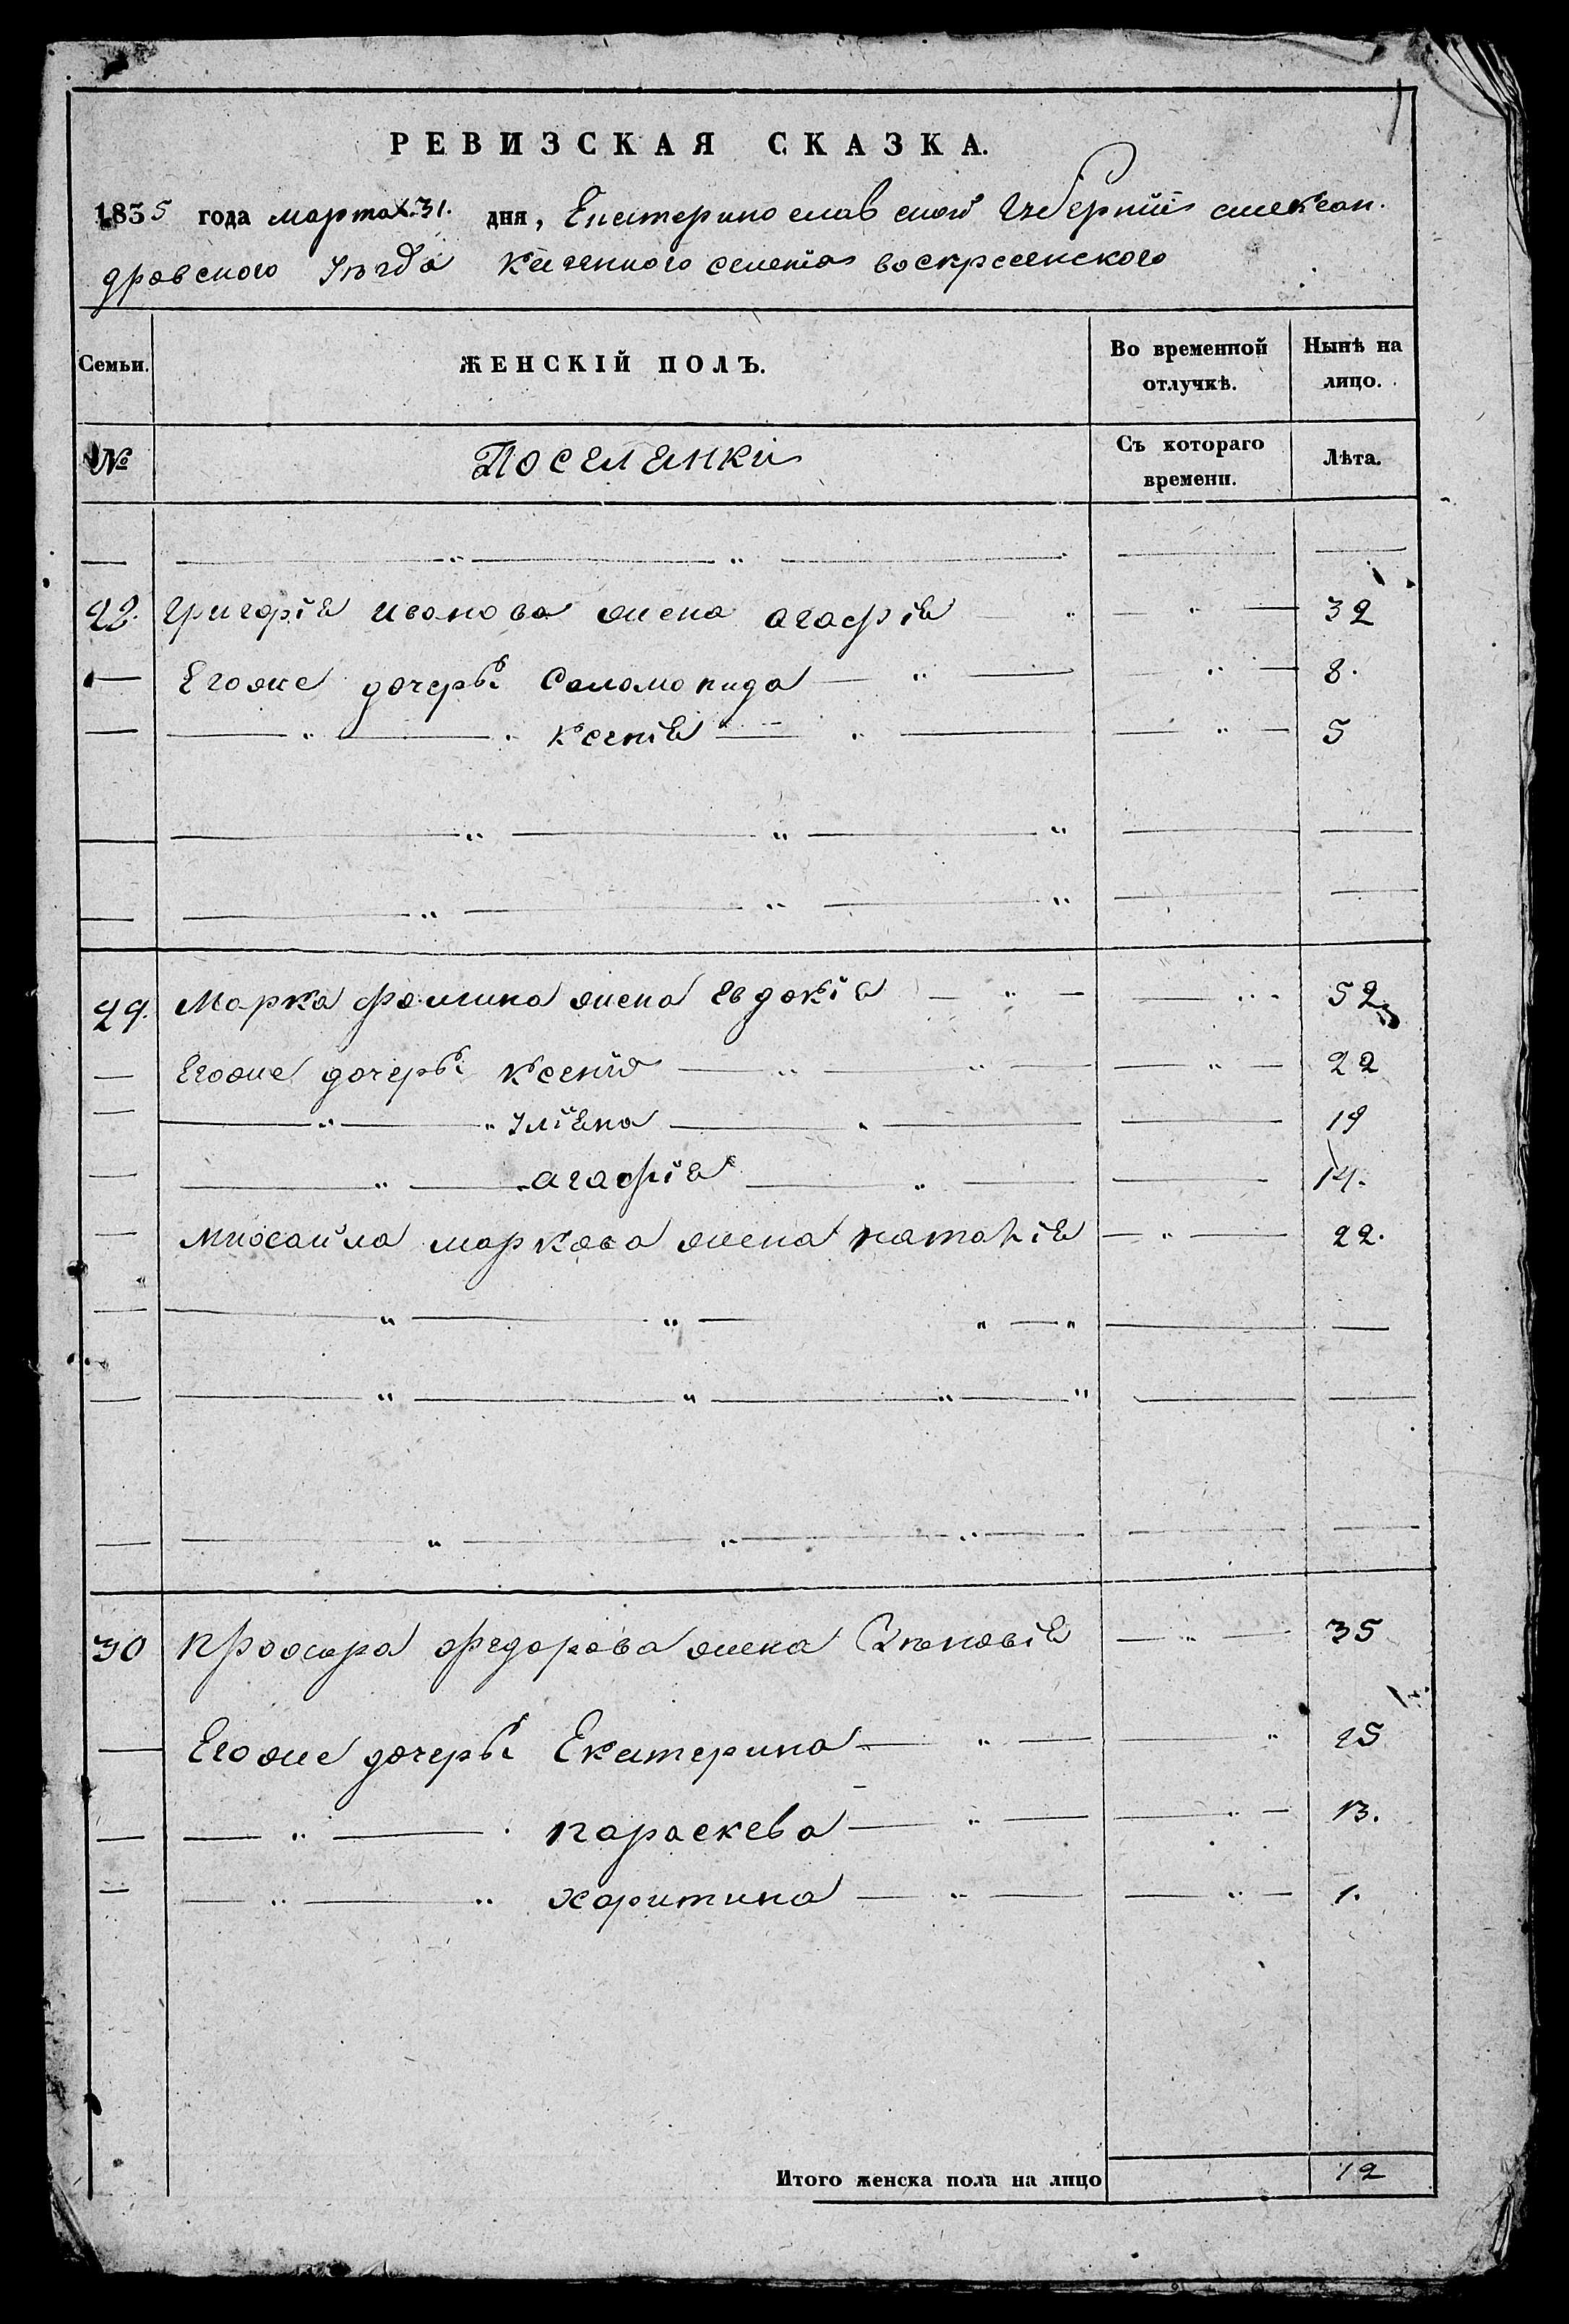 РЕВИЗСКАЯ СКАЗКА.
1835 года марта 31. дня, Екатеринославской губерніи алексан.
дровского уѣзда казенного селенія воскресенского
Семьи. ЖЕНСКІЙ ПОЛЪ. Во временной отлучкѣ. Нынѣ на лицо.
№ Поселянки Съ котораго времени. Лѣта.
Григорія иванова жена агафія 32
Егоже дочери Соломонида 8.
ксенія 5
29. Марка фомина жена евдокія 52
Егоже дочери ксенія 22
уліяна 19
агафія 14.
михайла маркова жена наталія 22.
30 прохора федорова жена Зѣновія 35
Егоже дочери Екатерина 15
параскева 13.
харитина 1.
Итого женска пола на лицо 12